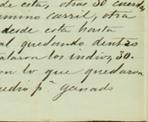 de esta, otras 30 cuerdas
camino carril, otra
desde esta hasta
al quedando dentro
taron los indios, 30.
on lo que quedaron
medio pª ganado